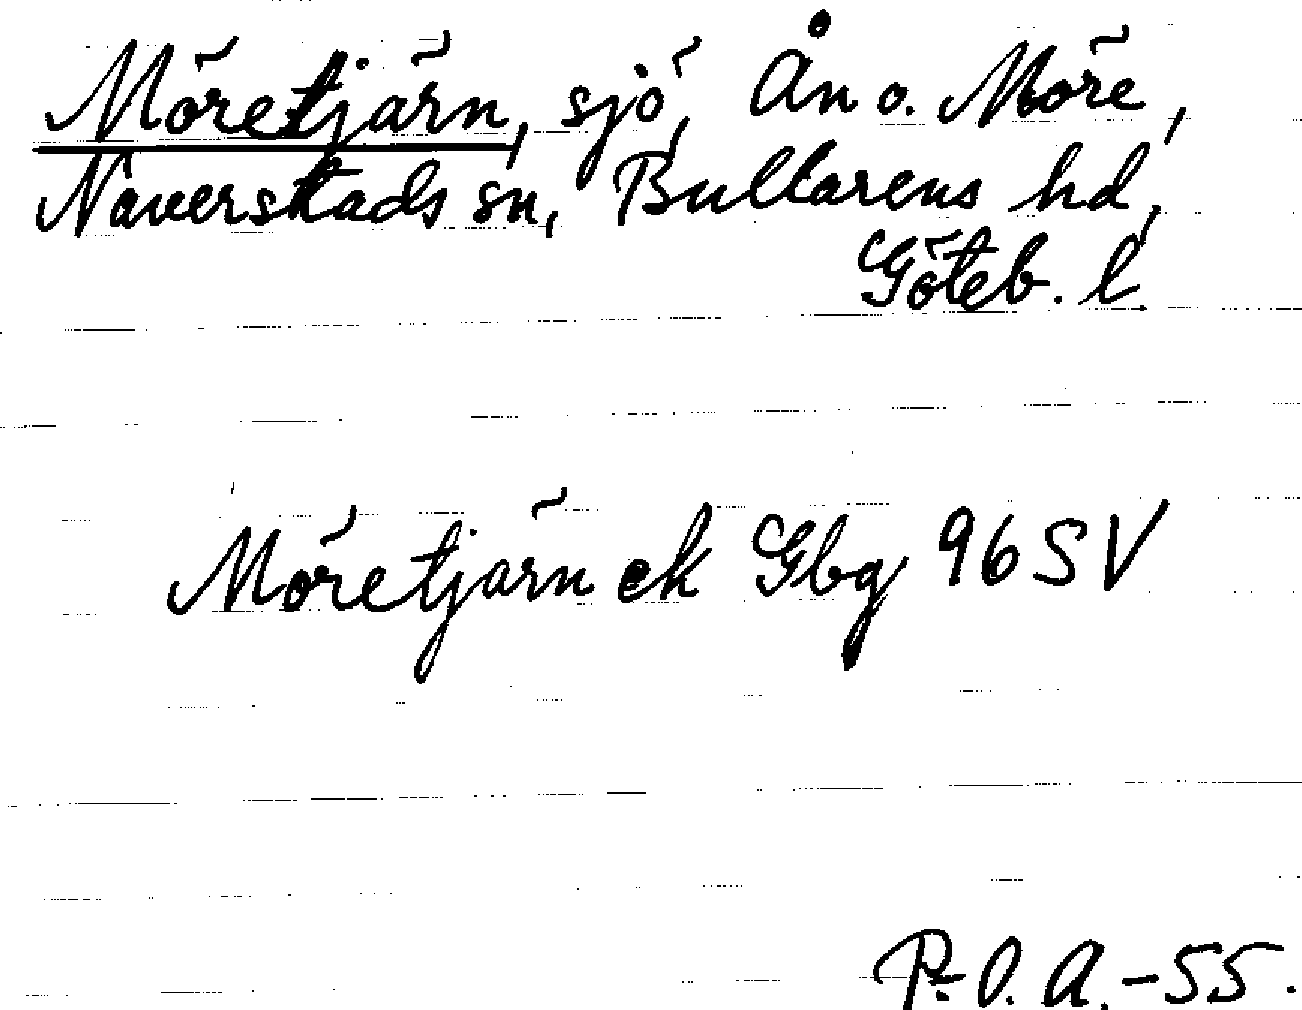 Möretjärn, sjö, Ån o. Möre,
Naverstads sn, Bullarens hd,
Göteb. l.
Möretjärn ek Gbg 96 SV
P.-O. A. -55.